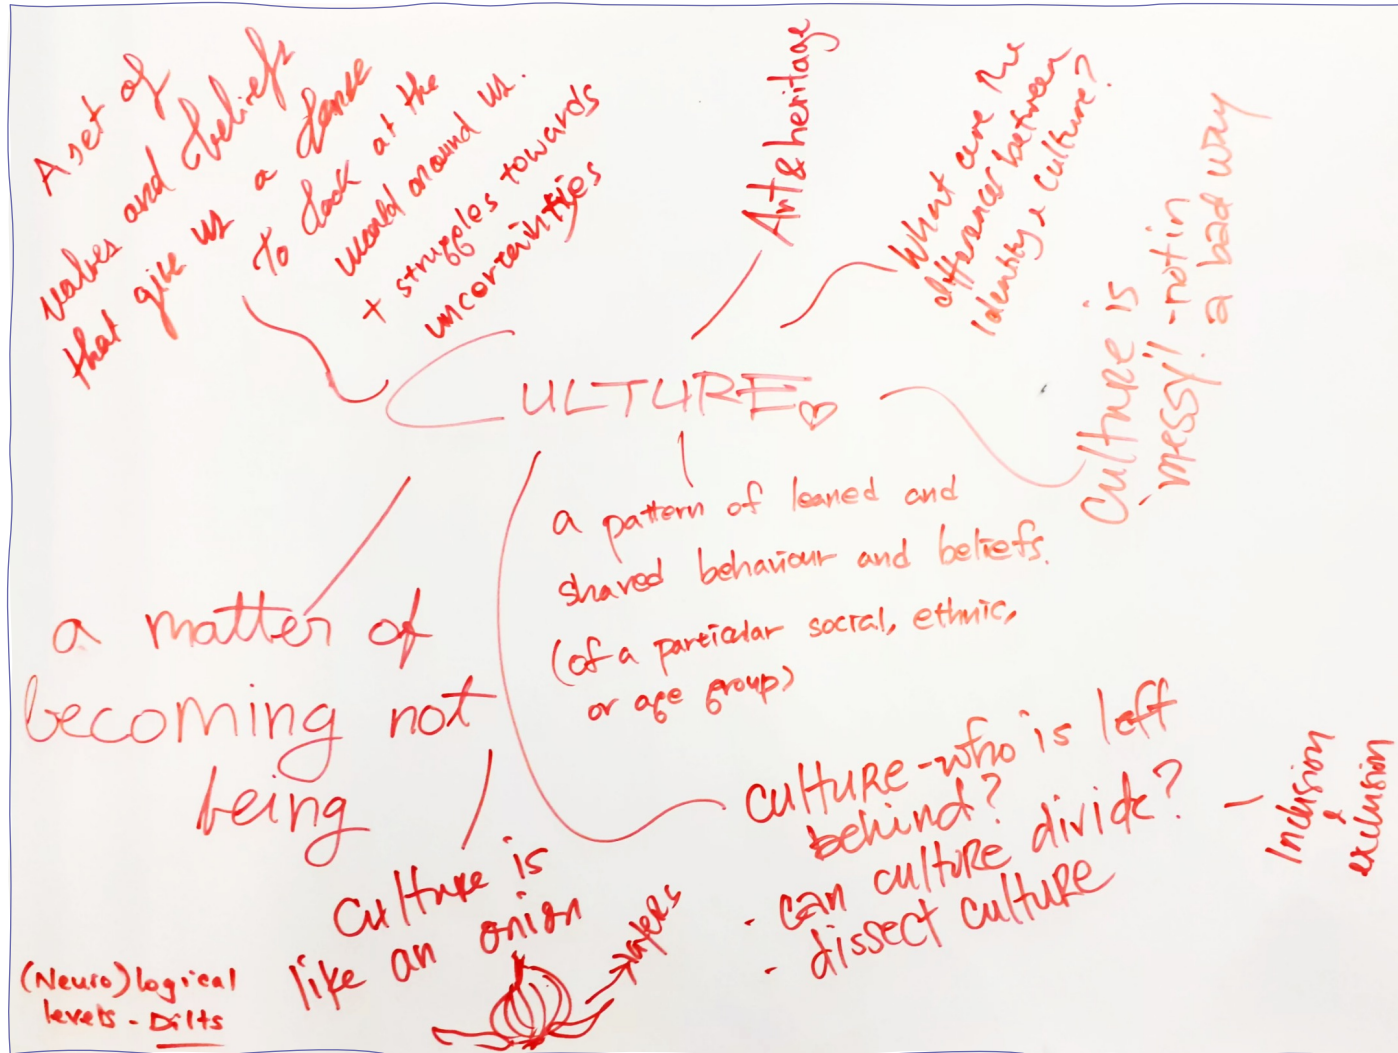 A set of
values and beliefs
that give us a sense
to look at the
world around us.
+ struggles towards
uncertainties
Art & heritage
What are the
differences between
identity & culture?
culture is
- messy! - not in
a bad way
CULTURE
a pattern of leaned and
shared behaviour and beliefs.
(of a particular social, ethnic,
or age group)
a matter of
becoming not
being
culture is
like an onion
layers
(Neuro)logical
levels - Dilts
culture - who is left
behind?
- can culture divide?
- dissect culture
- Inclusion
&
exclusion